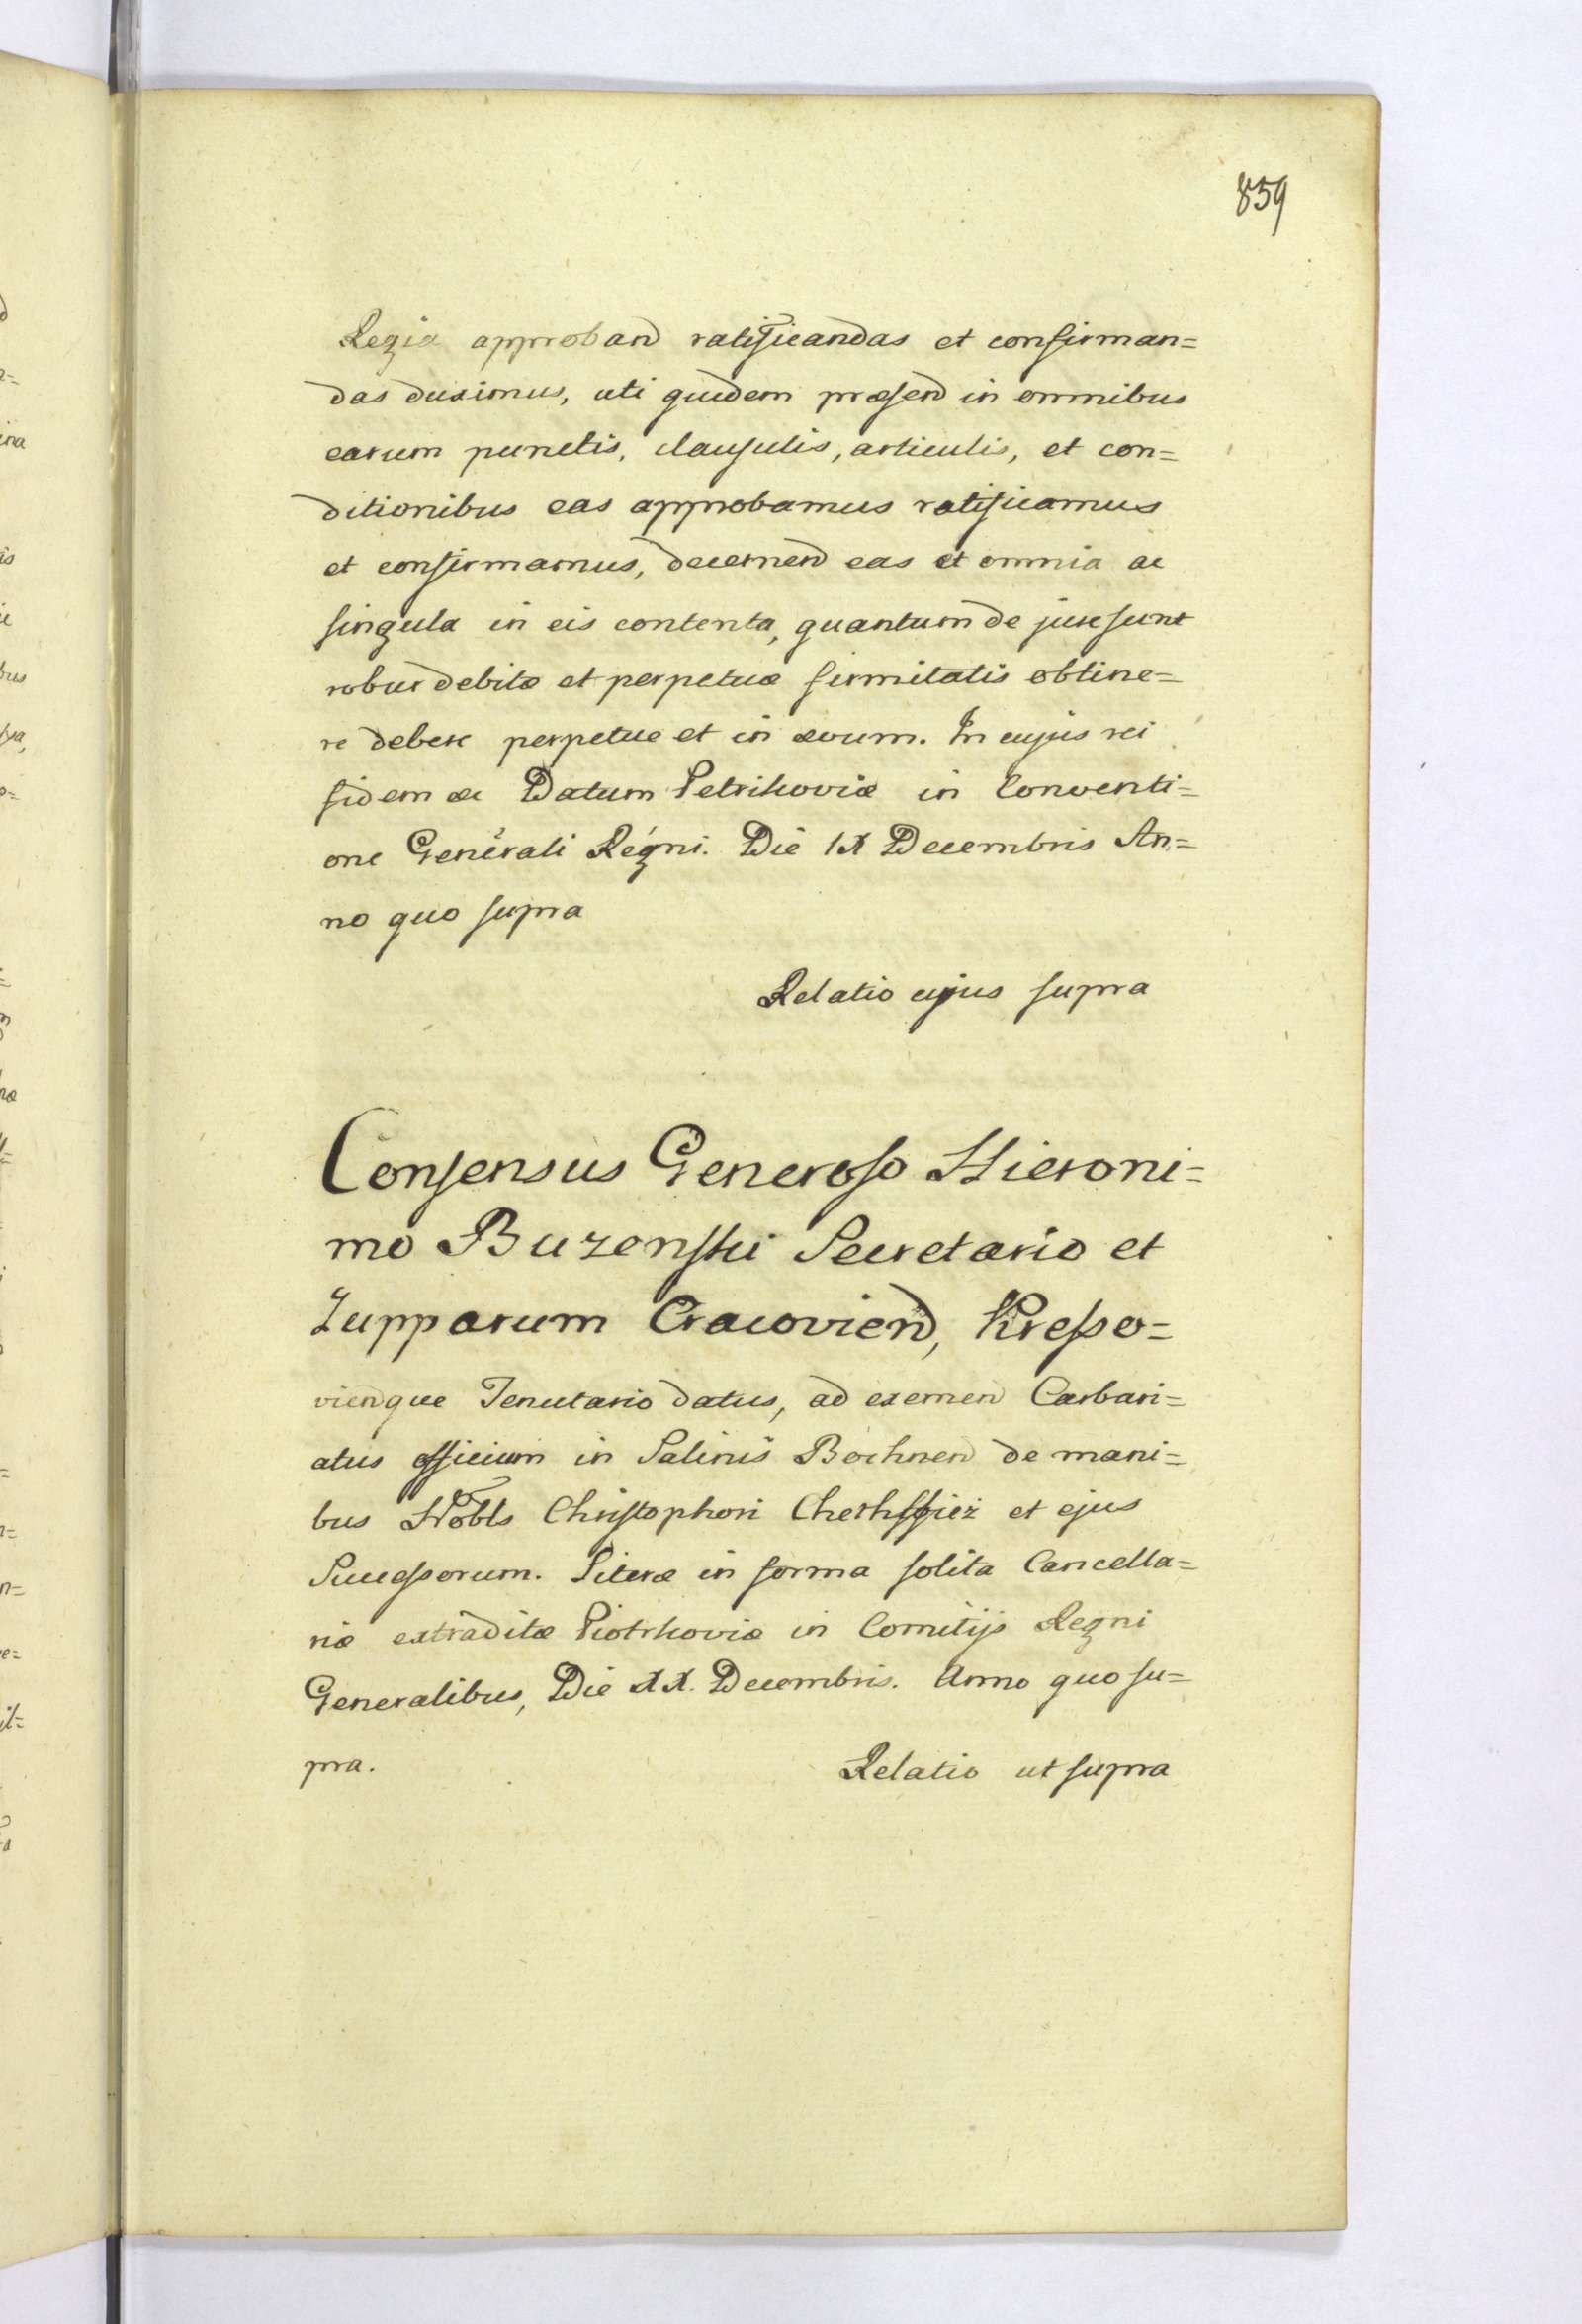 859
Regia approband ratificandas et confirman=
das duximus, uti quidem præsend in omnibus
earum punctis, clausulis, articulis, et con=
ditionibus eas approbamus ratificamus
et confirmamus, decernend eas et omnia ac
singula in eis contenta, quantum de jure sunt
robur debitæ et perpetuæ firmitatis obtine=
re debere perpetue et in ævum. In cujus rei
fidem &c Datum Petrikoviæ in Conventi=
one Generali Regni. Die IX Decembris An=
no quo supra
Relatio cujus supra
Consensus Generoso Hieroni=
mo Buzenski Secretario et
Zupparum Cracoviend, Kresso=
viendque Tenutario datus, ad exemend Carbari=
atus officium in Salinis Bochnend de mani=
bus Nobls Christophori et ejus
Successorum. Literæ in forma solita Cancella=
riæ extraditæ Piotrkoviæ in Comitijs Regni
Generalibus, Die XX. Decembris. Anno quo su=
pra.
Relatio ut supra